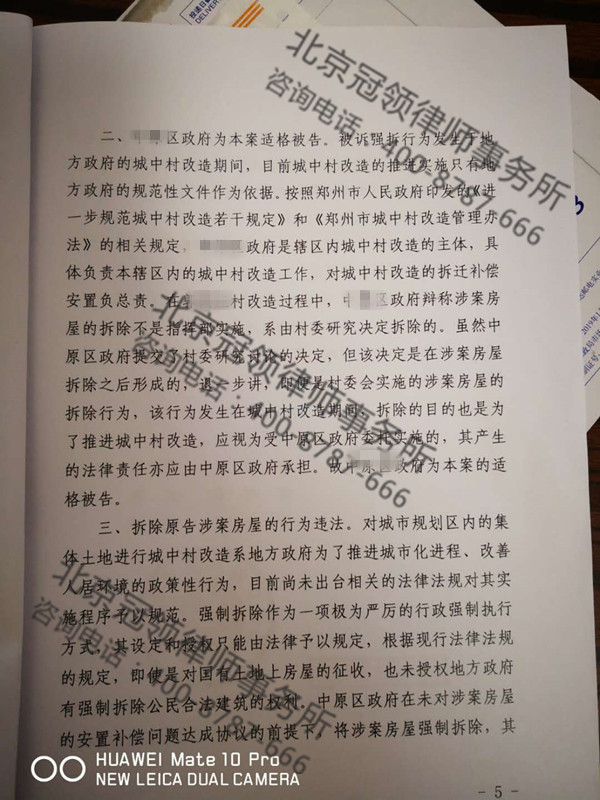 投递日
DELIVER
北京冠领律师事务所
咨询电话：400-8787-666
二、原区政府为本案适格被告。被诉强拆行为发生于地
方政府的城中村改造期间，目前城中村改造的推进实施只有地
方政府的规范性文件作为依据。按照郑州市人民政府印发的《进
一步规范城中村改造若干规定》和《郑州市城中村改造管理办
法》的相关规定，政府是辖区内城中村改造的主体，具
体负责本辖区内的城中村改造工作，对城中村改造的拆迁补偿
安置负总责。在村改造过程中，中区政府辩称涉案房
屋的拆除不是指挥部实施，系由村委研究决定拆除的。虽然中
原区政府提交了村委研究讨论的决定，但该决定是在涉案房屋
拆除之后形成的，退一步讲，即便是村委会实施的涉案房屋的
拆除行为，该行为发生在城中村改造期间，拆除的目的也是为
了推进城中村改造，应视为受中原区政府委托实施的，其产生
的法律责任亦应由中原区政府承担。故中原政府为本案的适
格被告。
北京冠领律师事务所
咨询电话：400-8787-666
三、拆除原告涉案房屋的行为违法。对城市规划区内的集
体土地进行城中村改造系地方政府为了推进城市化进程、改善
人居环境的政策性行为，目前尚未出台相关的法律法规对其实
施程序予以规范。强制拆除作为一项极为严厉的行政强制执行
方式，其设定和授权只能由法律予以规定，根据现行法律法规
的规定，即使是对国有土地上房屋的征收，也未授权地方政府
有强制拆除公民合法建筑的权利。中原区政府在未对涉案房屋
的安置补偿问题达成协议的前提下，将涉案房屋强制拆除，其
北京冠领律师事务所
咨询电话：400-8787-666
- 5 -
HUAWEI Mate 10 Pro
NEW LEICA DUAL CAMERA